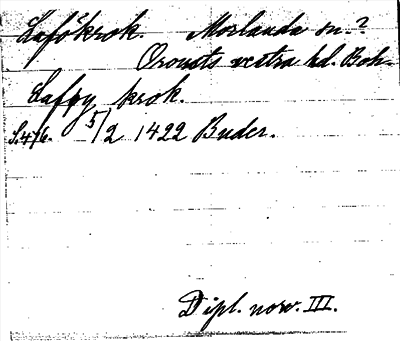 Laföskrok. Morlanda sn.?
Orousts vestra hd. Boh.
Lafføy krok.
S. 476. 5/2 1422 Buder.
Dipl. norv. III.